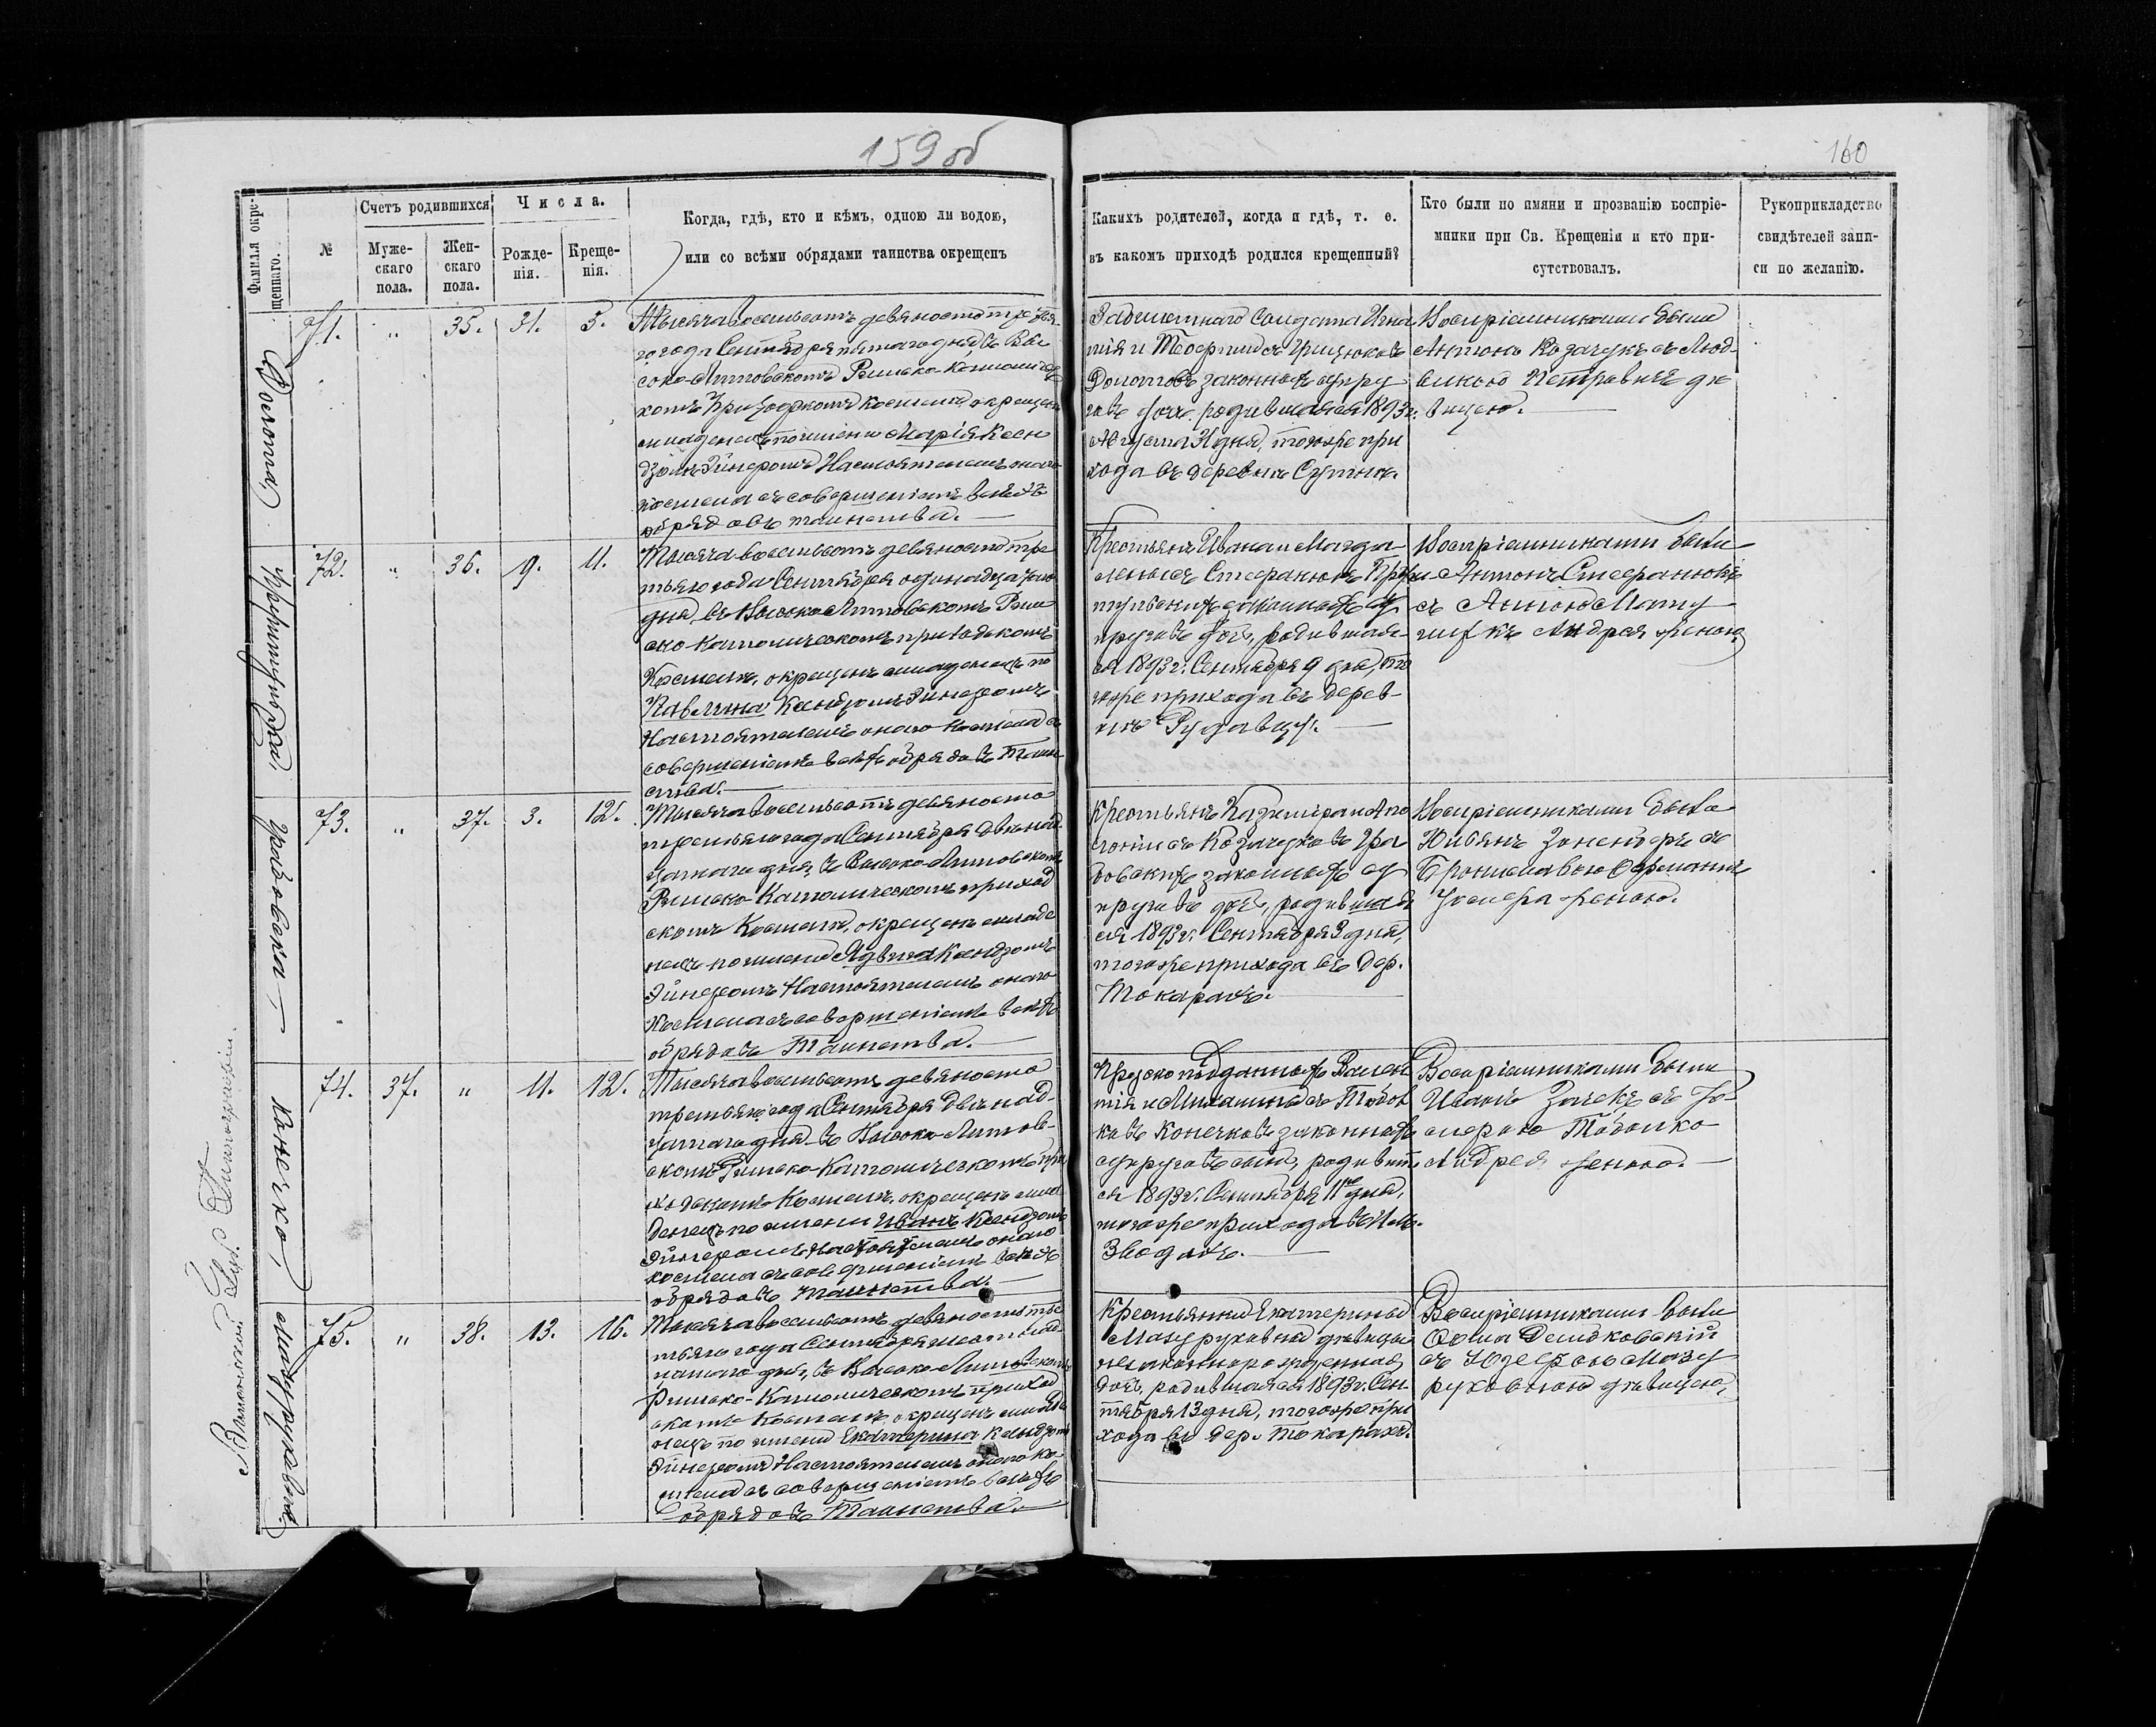 159 об
160
Фамилія окре-
щеннаго.
№
Счетъ родившихся
Муже-
скаго
пола.
Жен-
скаго
пола.
Числа.
Рожде-
нія.
Креще-
нія.
Когда, гдѣ, кто и кѣмъ, одною ли водою,
или со всѣми обрядами таинства окрещенъ
Какихъ родителей, когда и гдѣ, т. е.
въ какомъ приходѣ родился крещенный?
Кто были по имяни и прозванію воспріе-
мники при Св. Крещеніи и кто при-
сутствовалъ.
Рукоприкладство
свидѣтелей запи-
си по желанію.
71.
"
35.
31.
5.
Тысяча восемьсотъ девяносто третья-
го года Сентября пятаго дня, въ Вы
соко-Литовскомъ Римско-Католичес
комъ Приходскомъ Костелѣ, окрещенъ
младенецъ по имени Марія Ксен
дзомъ Эйнеромъ Настоятелемъ онаго
костела съ совершеніемъ всѣхъ
обрядовъ таинства.
солдата Игна
тія и Теофили съ Грицюковъ
законныхъ супру
говъ дочь, родившаяся 1893 г.
Августа 31 дня, того же при
хода въ деревнѣ
Воспріемниками были
Антонъ Козачукъ съ Люд-
викою Петровичъ дѣ
вицею.
72.
"
36.
9.
11.
Крупитульская
Тысяча восемьсотъ девяносто тре
тьяго года Сентября одинадцатаго
дня, въ Высоко-Литовскомъ Рим
ско-Католическомъ приходскомъ
Костелѣ, окрещенъ младенецъ по
Павлина Ксендзомъ Эйнеромъ
Настоятелемъ онаго Костела съ
совершеніемъ всѣхъ обрядовъ Таин
ства.
Крестьянъ Ивана и Магда-
лены съ Стефанюковъ
законныхъ су
пруговъ дочь, родившая-
ся 1893 г. Сентября 9 дня, то
гоже прихода въ дерев-
нѣ Рудавцу.
Воспріемниками были
Антонъ Стефанюкъ
съ Анною
Андрея женою
73.
"
37.
3.
12.
Тысяча восемьсотъ девяносто
третьяго года Сентября двѣнад-
цатаго дня, въ Высоко-Литовскомъ
Римско-Католическомъ приход
скомъ Костелѣ, окрещенъ младе
нецъ по имени Ядвига Ксендзомъ
Эйнеромъ Настоятелемъ онаго
Костела съ совершеніемъ всѣхъ
обрядовъ Таинства.
Крестьянъ Казимира и Апо
лоніи съ Козачуковъ Гра
бовскихъ законныхъ су
пруговъ дочь, родившая
ся 1893 г. Сентября 3 дня,
того же прихода въ дер.
Токарахъ.
Воспріемниками были
съ
Брониславою
женою.
74.
37.
"
11.
12.
Конечко
Тысяча восемьсотъ девяносто
третьяго года Сентября двѣнад-
цатаго дня въ Высоко-Литов-
скомъ Римско-Католическомъ при
ходскомъ Костелѣ, окрещенъ мла
денецъ по имени Иванъ Ксендзомъ
Эйнеромъ Настоятелемъ онаго
костела съ совершеніемъ всѣхъ
обрядовъ таинства.
Прускоподданныхъ Вален
тія и Михалины съ
Конечковъ законныхъ
супруговъ сынъ, родивш.
ся 1893 г. Сентября 11го дня,
того же прихода въ им.
Зводахъ.
Воспріемниками были
Иванъ съ Ю-
Андрея женою.
75.
"
38.
13.
16.
Мазуруковна
Тысяча восемьсотъ девяносто тре
тьяго года Сентября шестнад-
цатаго дня, въ Высоко-Литовскомъ
Римско-Католическомъ приход
скомъ Костелѣ, окрещенъ младе
нецъ по имени Екатерина Ксендзомъ
Эйнеромъ Настоятелемъ онаго ко-
стела съ совершеніемъ всѣхъ
обрядовъ Таинства.
Крестьянки Екатерины
Мазуруковны дѣвицы
незаконнорожденная
дочь, родившаяся 1893 г. Сен-
тября 13 дня, того же при
хода въ дер. Токарахъ.
Воспріемниками были
Ѳома Демковскій
съ Юзефою Мазу
руковною дѣвицею,
Виленской Губ. Типографіи.